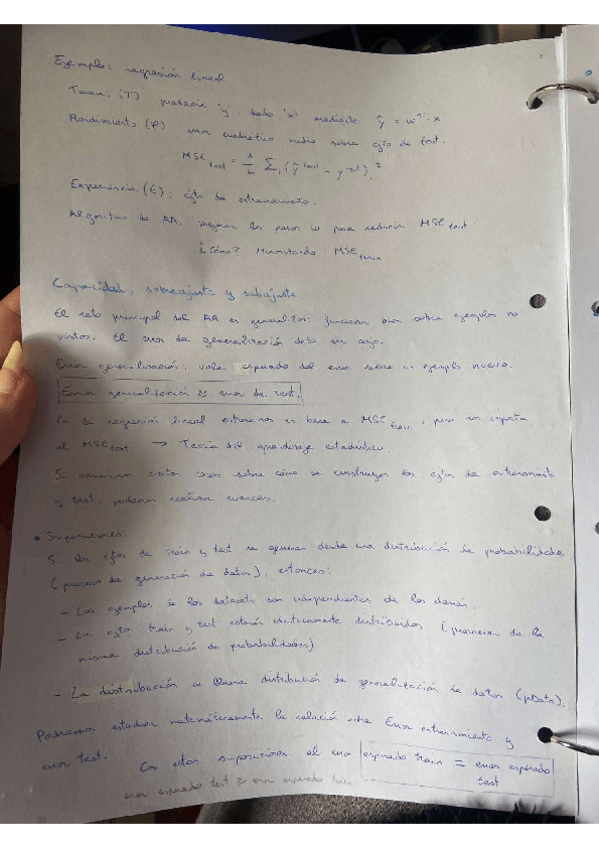 Ejemplo: regresión lineal
Tarea: (T) predecir 'y', dado 'x' mediante ŷ = wᵀ · x
Rendimiento (P) error cuadrático medio sobre cjto de test.
MSE test = 1/m Σᵢ (ŷ test - y test)ᵢ²
Experiencia (E): cjto de entrenamiento.
Algoritmo de AA, mejorar los pesos w para reducir MSE test
¿Cómo? Minimizando MSE train
Capacidad, sobreajuste y subajuste
El reto principal del AA es generalizar: funcionar bien sobre ejemplos no
vistos. El error de generalización debe ser bajo.
Error generalización: valor esperado del error sobre un ejemplo nuevo.
Error generalización ≈ error de test.
En la regresión lineal entrenamos en base a MSE train, pero nos importa
el MSE test → Teoría del aprendizaje estadístico.
Si asumimos ciertas cosas sobre cómo se construyen los cjtos de entrenamiento
y test, podemos realizar avances.
Suposiciones:
Si los cjtos de train y test se generan desde una distribución de probabilidades
(proceso de generación de datos), entonces:
- Los ejemplos de los datasets son independientes de los demás.
- Los cjtos train y test estarán identicamente distribuidos (provienen de la
misma distribución de probabilidades)
- La distribución se llama distribución de generalización de datos (pData).
Podremos estudiar matemáticamente la relación entre Error entrenamiento y
error test.
Con estas suposiciones el error esperado train = error esperado
test
error esperado test ≥ error esperado train